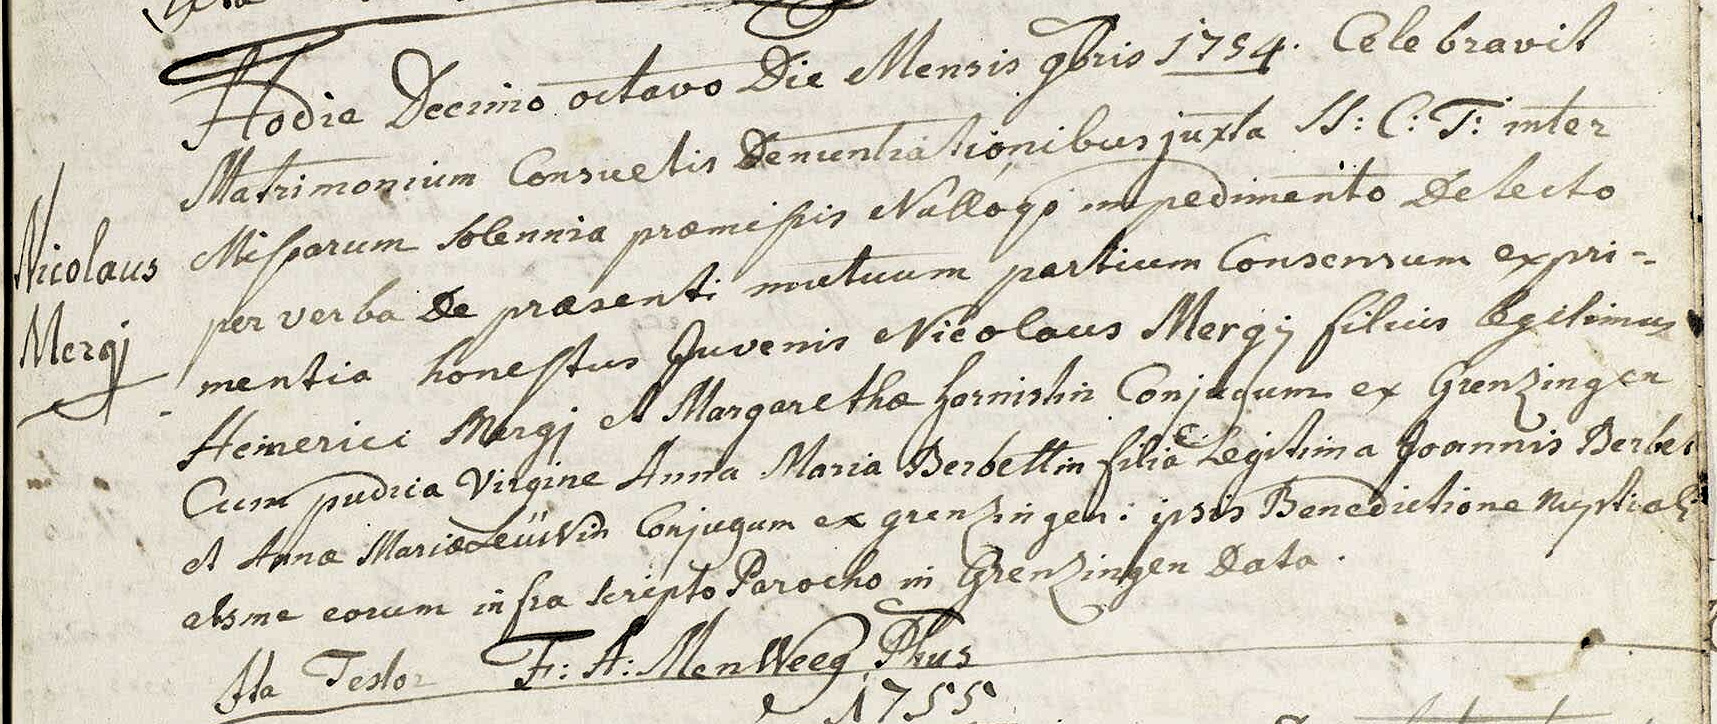 Hodie Decimo octavo Die Mensis 9bris 1754. Celebravit
Matrimonium Consuetis Denuntiationibus juxta SS: C: T: inter
Missarum Solennia præmissis Nulloqo impedimento Detecto
per verba De præsenti mutuum partium Consensum expri-
mentia honestus Juvenis Nicolaus Mergj filius legitimus
Heinerici Mergj et Margarethæ hornistin Conjugum ex Grenzingen
Cum pudica Virgine Anna Maria Berbettin filia Legitima Joannis Berbet
et Annæ Mariæ Conjugum ex grenzingen: ipsis Benedictione nuptiali
a me eorum infra scripto Parocho in Grenzingen Data.
Ita Testor F: A: MenWeeg Phus
1755
Nicolaus
Mergj